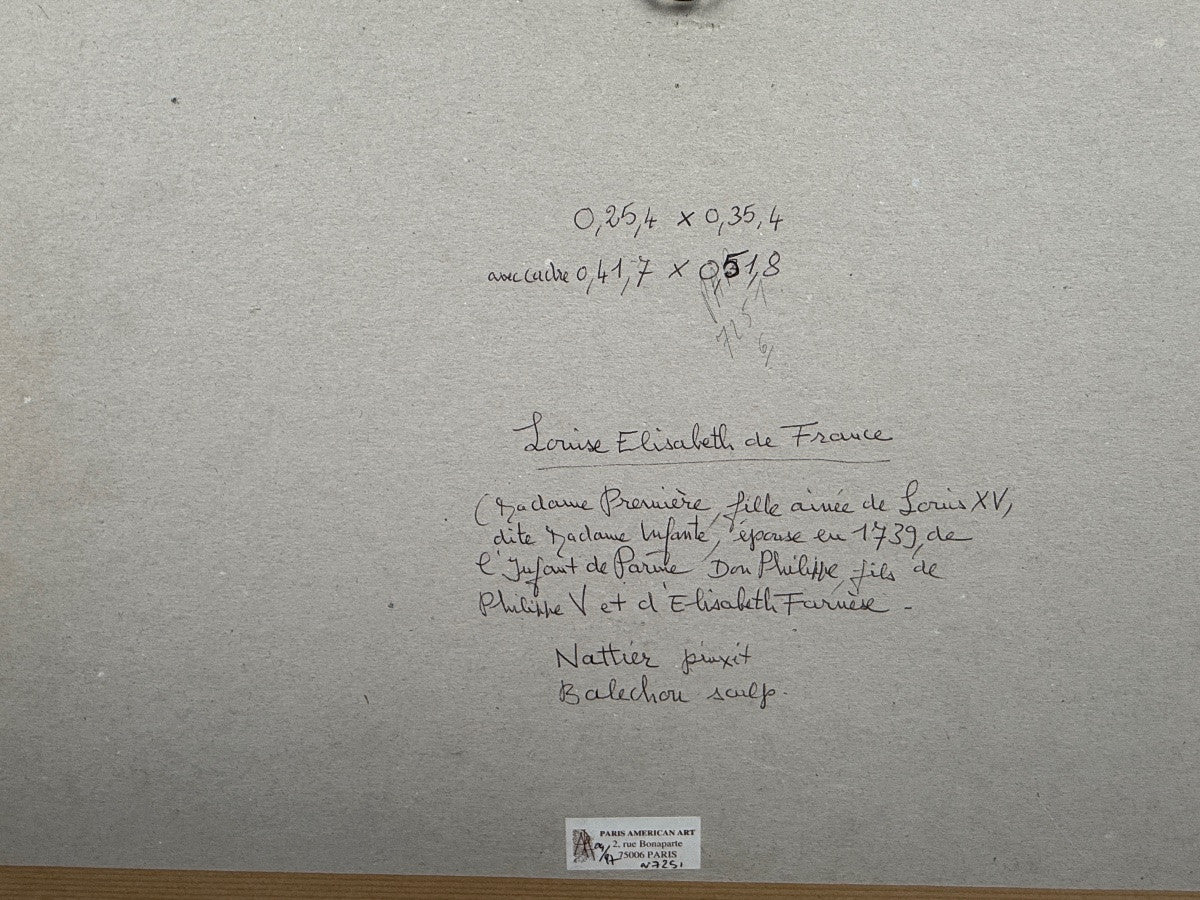 0,25,4 x 0,35,4
avec cadre 0,41,7 x 0,51,8
7251
Louise Elisabeth de France
(Madame Première, fille ainée de Louis XV,
dite Madame Infante, épouse en 1739, de
l'Infant de Parme Don Philippe, fils de
Philippe V et d'Elisabeth Farnèse -
Nattier pinxit
Balechou sculp.
PARIS AMERICAN ART
2, rue Bonaparte
75006 PARIS
N7251